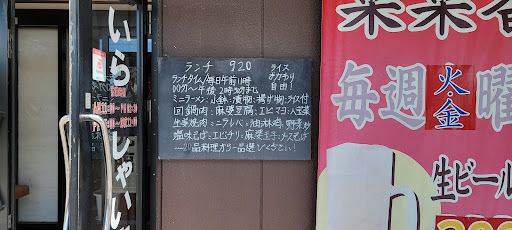 いらっしゃいま
ランチ 920
ライス
おかわり
自由!
ランチタイム/毎日午前11時
00分〜午後2時30分まで
ミニラーメン:小鉢:漬物:揚げ物:ライス付
回鍋肉:麻婆豆腐:エビマヨ:八宝菜
生姜焼肉:ニラレバ:油淋鶏:野菜炒
塩味そば:エビチリ:麻婆玉子:ソースそば
20品料理より一品選びください!
菜菜香
毎週火金曜
生ビール